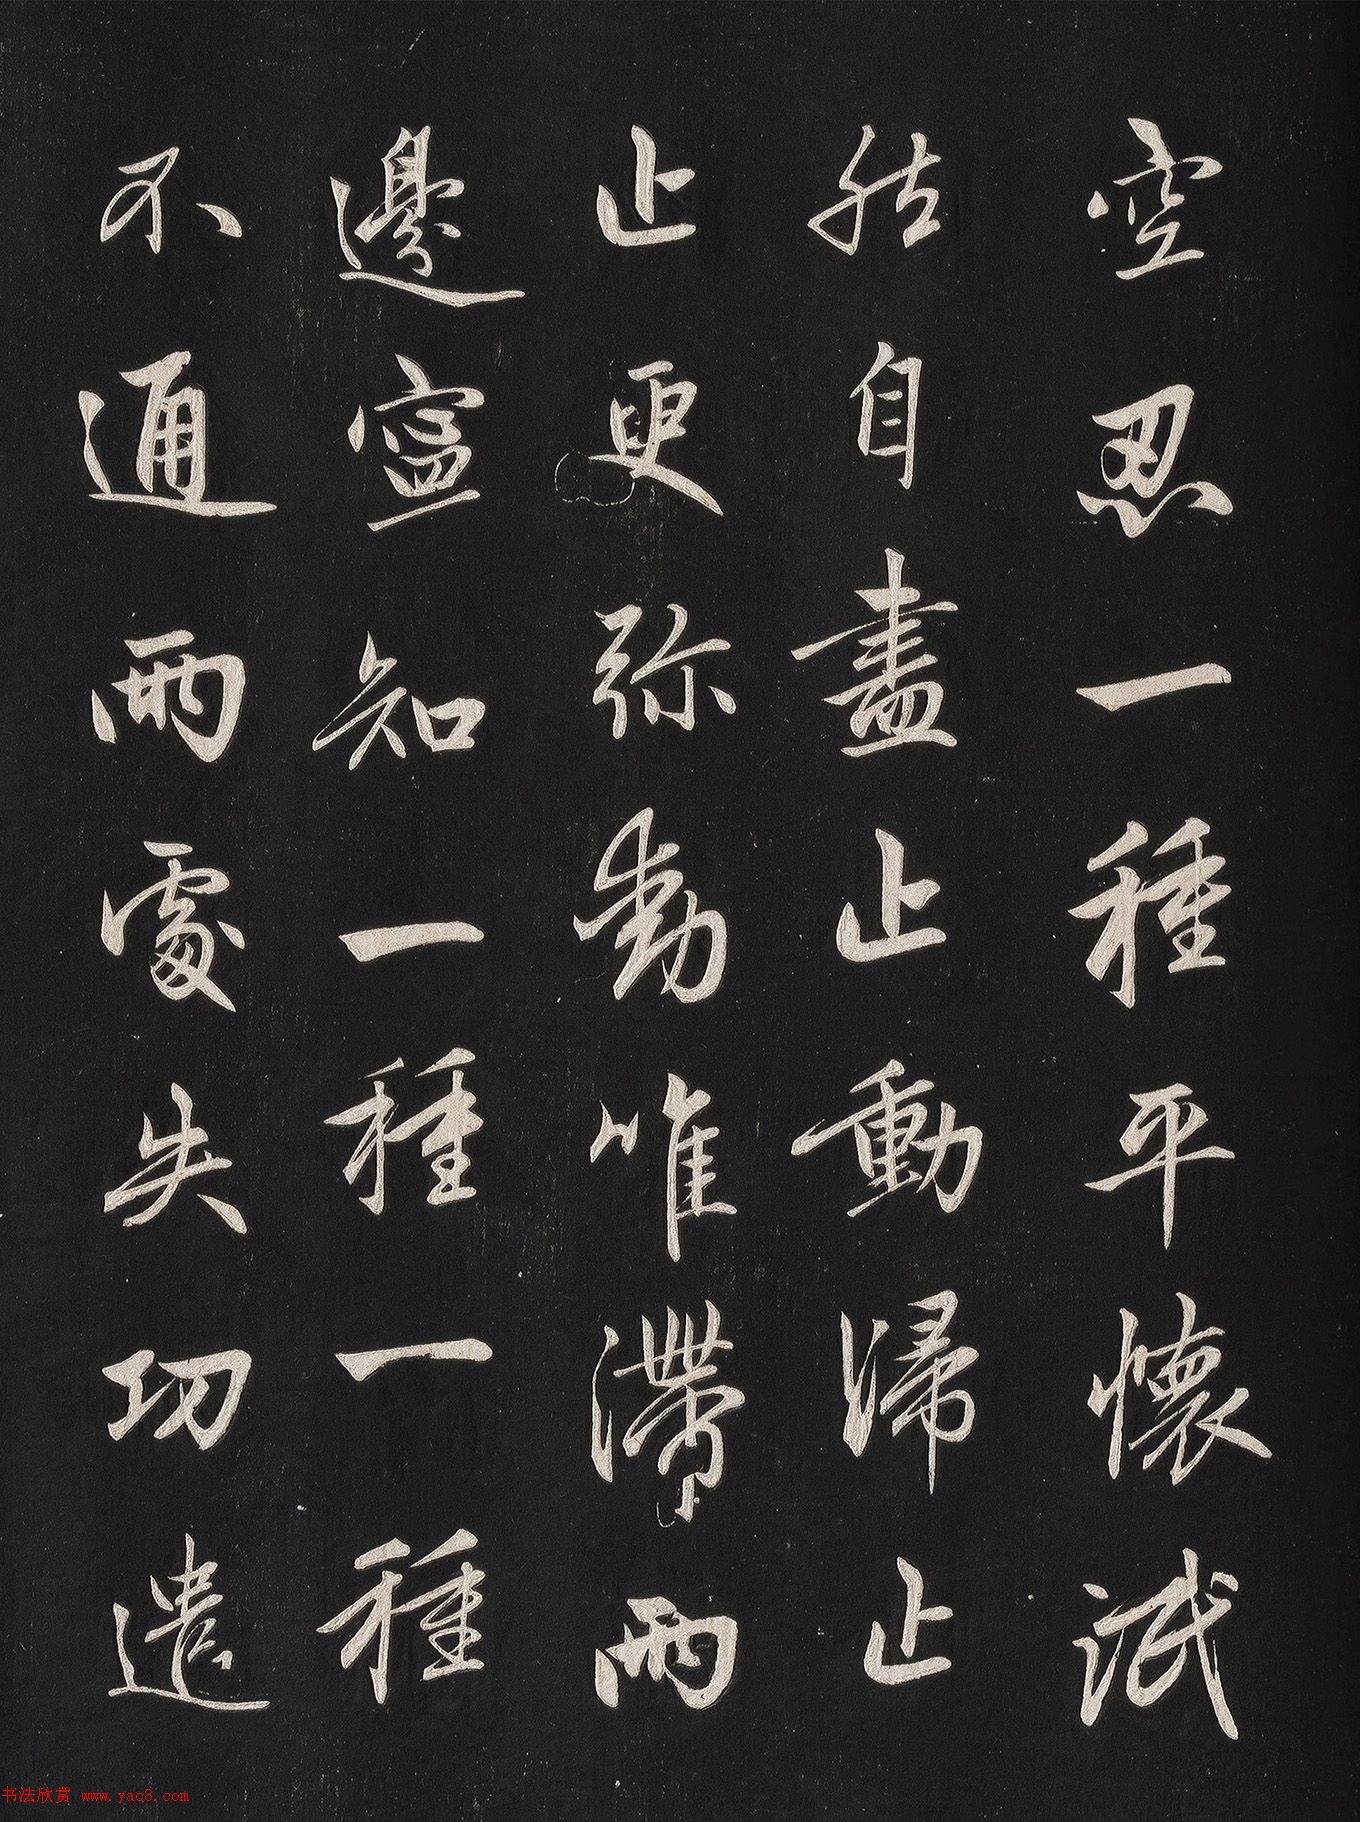 空忍一種平懷泯
然自盡止動歸止
止更弥動唯滯兩
邊寧知一種一種
不通兩處失功遣
书法欣赏 www.yac8.com